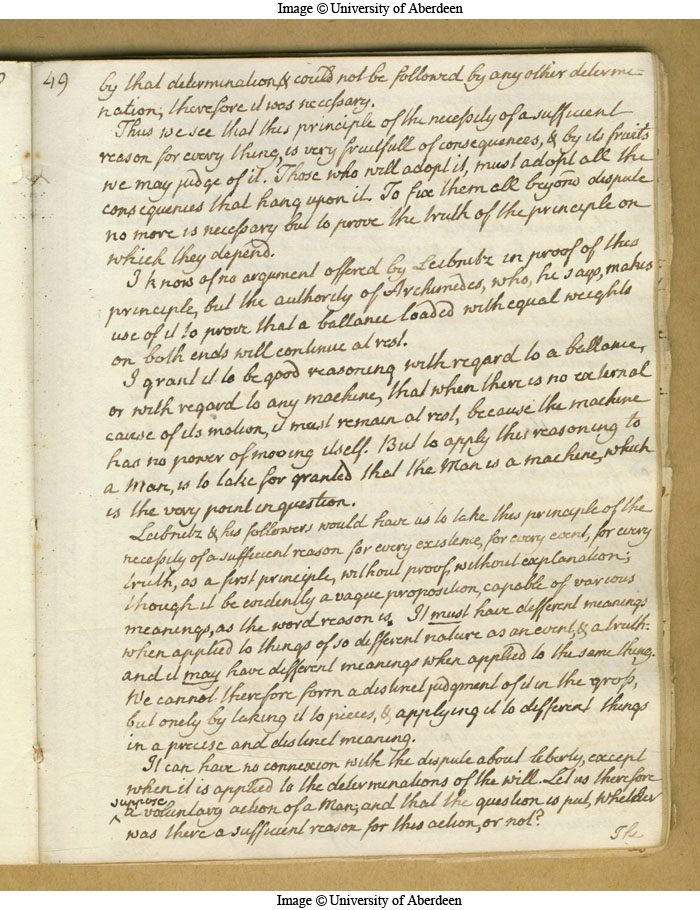 Image © University of Aberdeen
49
by that determination, & could not be followed by any other determi=
nation; therefore it was necessary.
Thus we see that this principle of the necessity of a sufficient
reason for every thing, is very fruitfull of consequences, & by its fruits
we may judge of it. Those who will adopt it, must adopt all the
consequences that hang upon it. To fix them all beyond dispute
no more is necessary but to prove the truth of the principle on
which they depend.
I know of no argument offered by Leibnitz in proof of this
principle, but the authority of Archimedes, who, he says, makes
use of it to prove that a ballance loaded with equal weights
on both ends will continue at rest.
I grant it to be good reasoning with regard to a ballance,
or with regard to any machine, that when there is no external
cause of its motion, it must remain at rest, because the machine
has no power of moving itself. But to apply this reasoning to
a Man, is to take for granted that the Man is a machine, which
is the very point in question.
Leibnitz & his followers would have us to take this principle of the
necessity of a sufficient reason for every existence, for every event, for every
truth, as a first principle, without proof, without explanation;
though it be evidently a vague proposition, capable of various
meanings, as the word reason is. It must have different meanings
when applied to things of so different nature as an event, & a truth:
and it may have different meanings when applied to the same thing.
We cannot therefore form a distinct judgment of it in the gross,
but onely by taking it to pieces, & applying it to different things
in a precise and distinct meaning.
It can have no connexion with the dispute about liberty, except
when it is applied to the determinations of the will. Let us therefore
suppose
^ a voluntary action of a Man; and that the question is put, Whether
was there a sufficient reason for this action, or not?
The
Image © University of Aberdeen